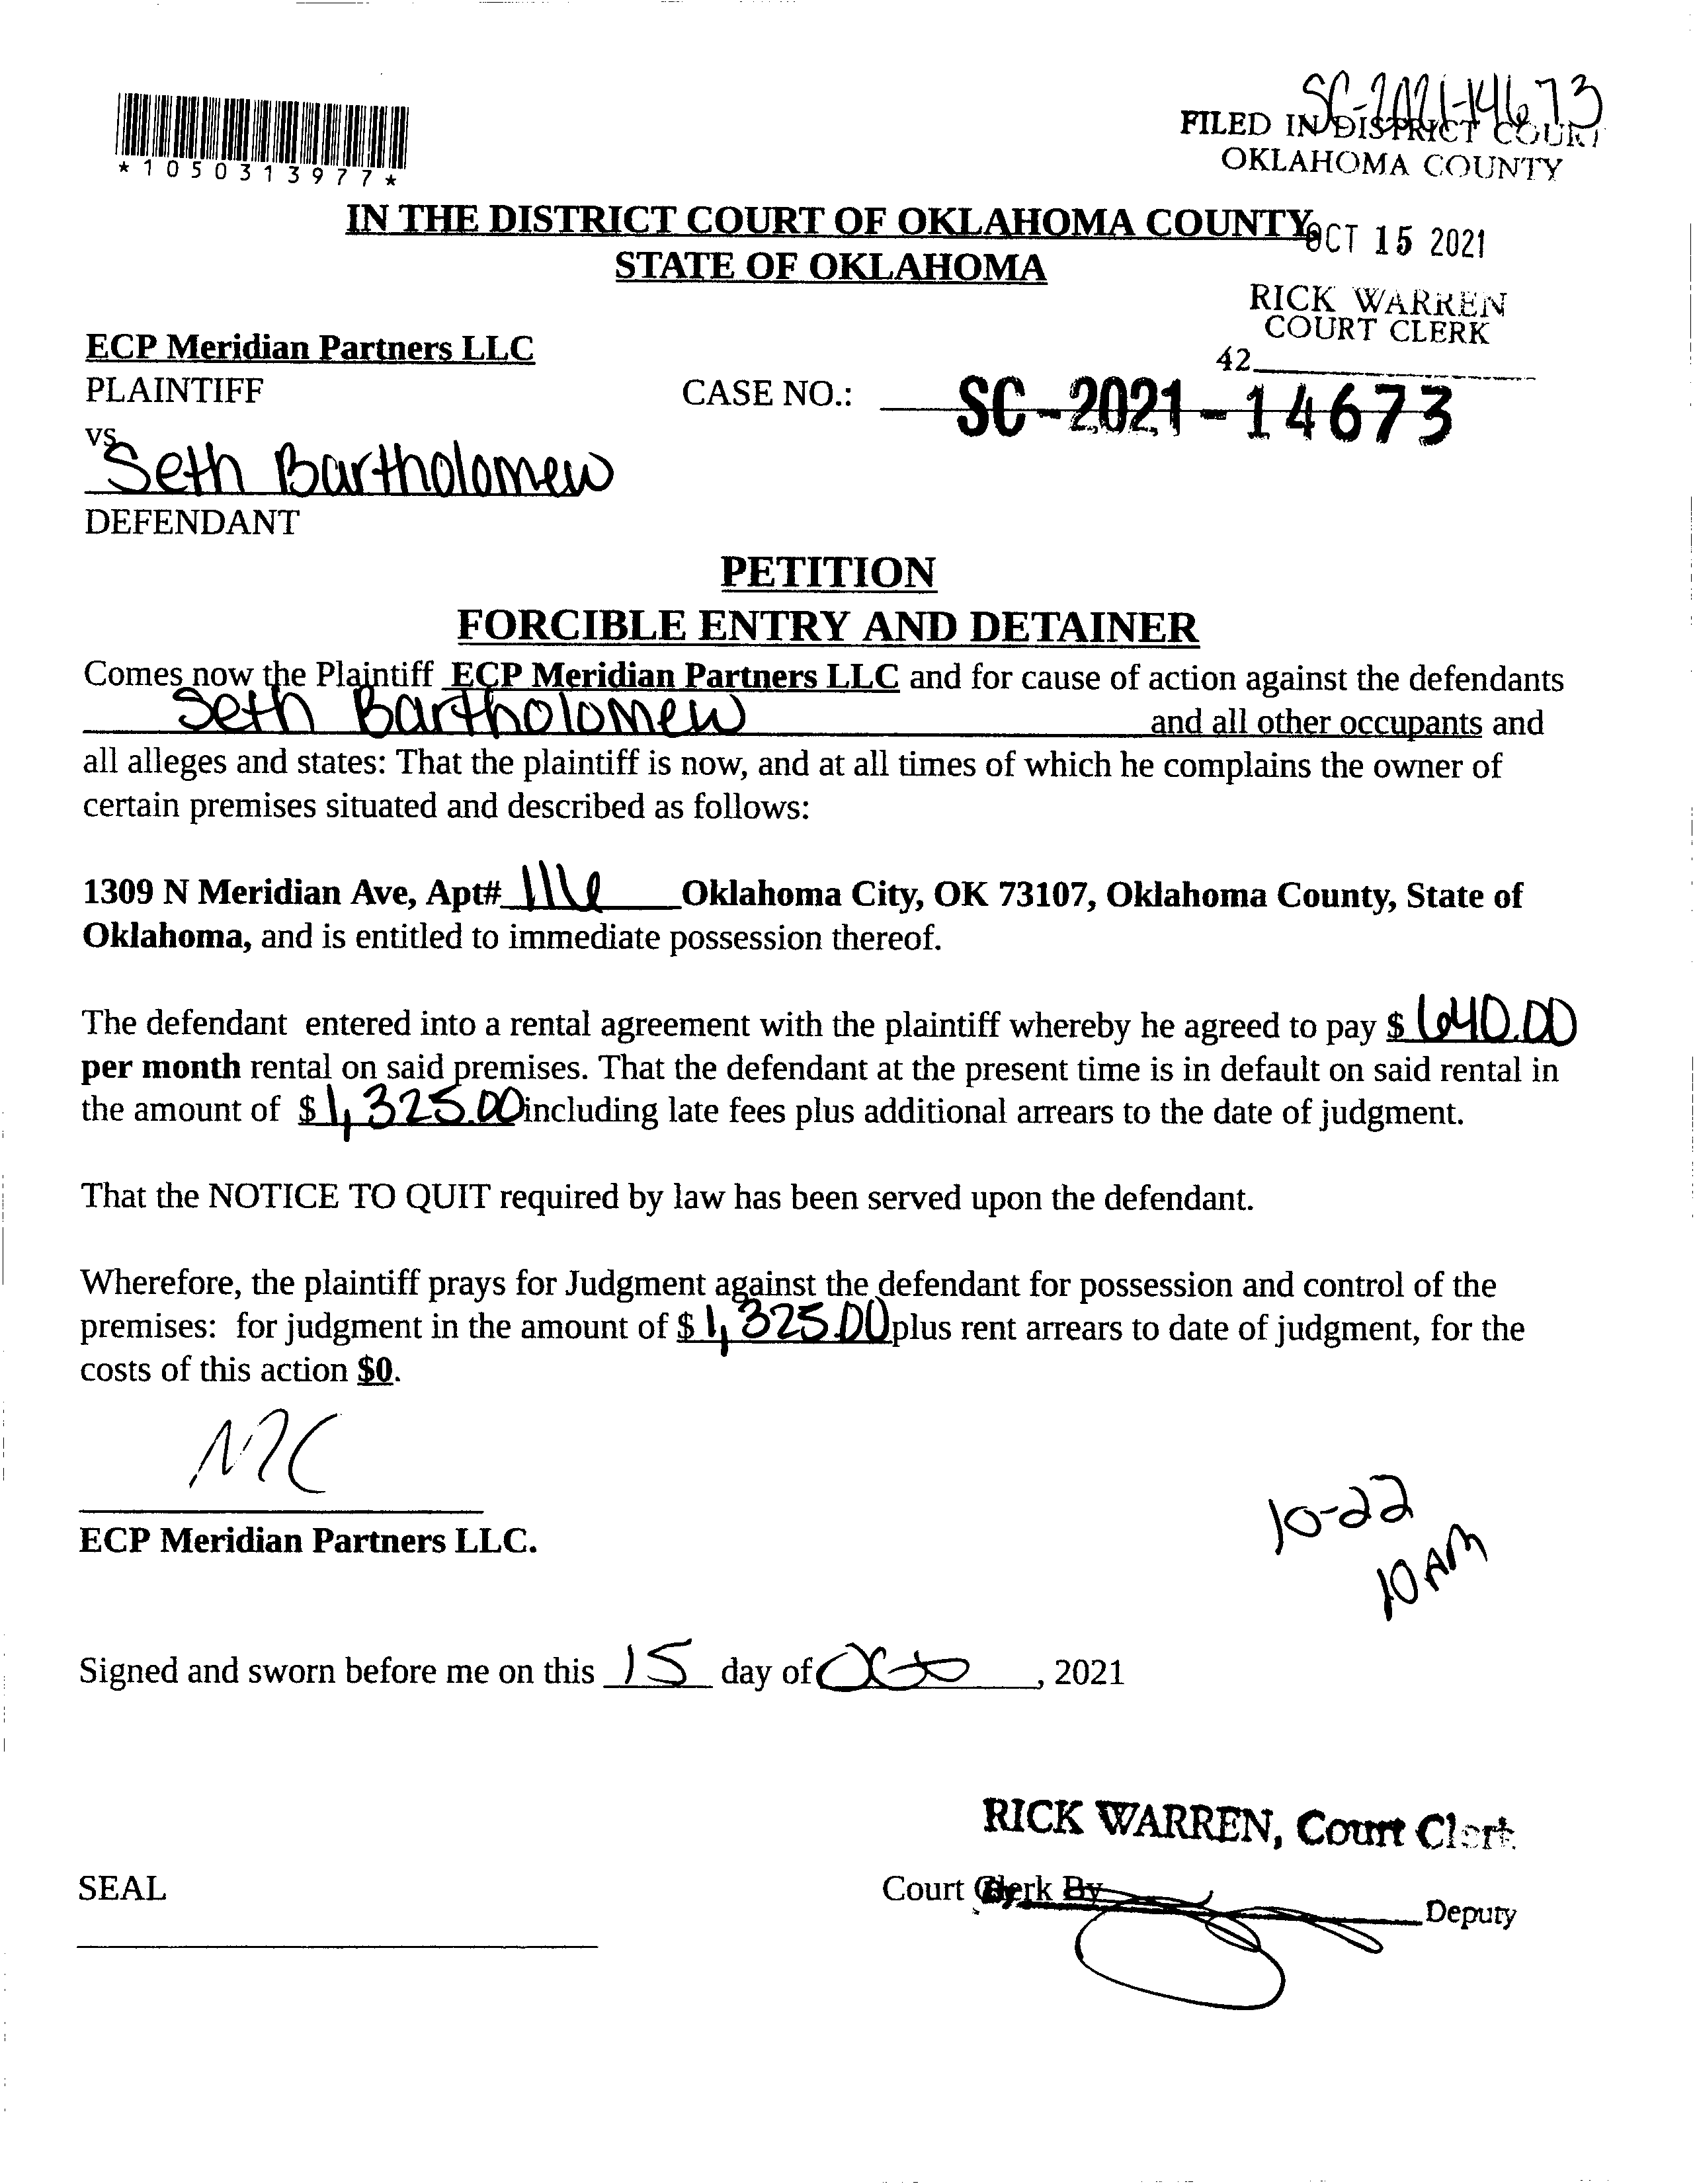 SC-2021-14673
FILED IN DISTRICT COURT
OKLAHOMA COUNTY
*1050313977*
IN THE DISTRICT COURT OF OKLAHOMA COUNTY
OCT 15 2021
STATE OF OKLAHOMA
RICK WARREN
COURT CLERK
42
ECP Meridian Partners LLC
PLAINTIFF
CASE NO.: SC-2021-14673
vs
Seth Bartholomew
DEFENDANT
PETITION
FORCIBLE ENTRY AND DETAINER
Comes now the Plaintiff ECP Meridian Partners LLC and for cause of action against the defendants
Seth Bartholomew and all other occupants and
all alleges and states: That the plaintiff is now, and at all times of which he complains the owner of
certain premises situated and described as follows:
1309 N Meridian Ave, Apt# 116 Oklahoma City, OK 73107, Oklahoma County, State of
Oklahoma, and is entitled to immediate possession thereof.
The defendant entered into a rental agreement with the plaintiff whereby he agreed to pay $ 640.00
per month rental on said premises. That the defendant at the present time is in default on said rental in
the amount of $ 1,325.00 including late fees plus additional arrears to the date of judgment.
That the NOTICE TO QUIT required by law has been served upon the defendant.
Wherefore, the plaintiff prays for Judgment against the defendant for possession and control of the
premises: for judgment in the amount of $ 1,325.00 plus rent arrears to date of judgment, for the
costs of this action $0.
ECP Meridian Partners LLC.
10-22
10 AM
Signed and sworn before me on this 15 day of Oct, 2021
RICK WARREN, Court Clerk
SEAL
Court Clerk By
By
Deputy